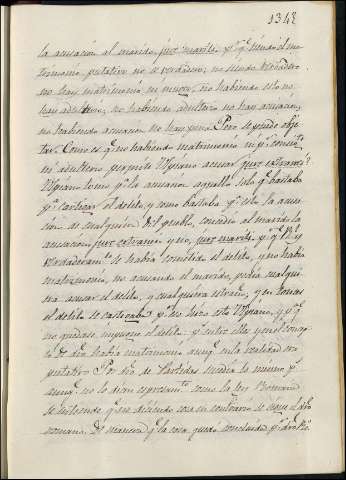 1343
la acusación al marido jure mariti. pr q. siendo el ma-
trimonio putativo no es verdadero; no siendo verdadero
no hay matrimonio ni muger; no habiendo esto no
hay adulterio; no habiendo adulterio no hay acusación,
no habiendo acusación no hay pena. Pero se puede obje-
tar. Como es que no habiendo matrimonio ni pr
ni adulterio permite Ulpiano acusar jure extranei?
Ulpiano como pa la acusacn aquello solo q. bastaba
pa castigar el delito, y como bastaba pa esto la acusa-
ción de cualquiera del pueblo, concedió al marido la
acusación jure extranei y no, jure mariti, pr q. Real y
verdaderamte se había cometido el delito, y no había
matrimonio, no acusando el marido, podía cualqui-
era acusar el delito, y cualquiera estraño, y en tonces
el delito se castigaba pr eso hace esto Ulpiano, y pa q.
no quedase impune el delito pr entre ellos y en el concep-
to de había matrimonio aunq. en la realidad era
putativo. Por dro de Partidas sucedia lo mismo pr
aunq. no lo dicen espresamte como la ley Romana
se entiende, q. no diciendo cosa en contrario se sigue el dro
romano. De manera q. la cosa quedó concluida pr dro Ro.